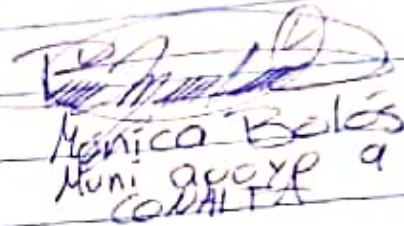 Mónica Bolos
Muni apoyo a
CONALFA